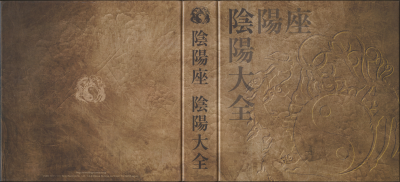 陰陽座 陰陽大全
陰陽座
陰陽大全